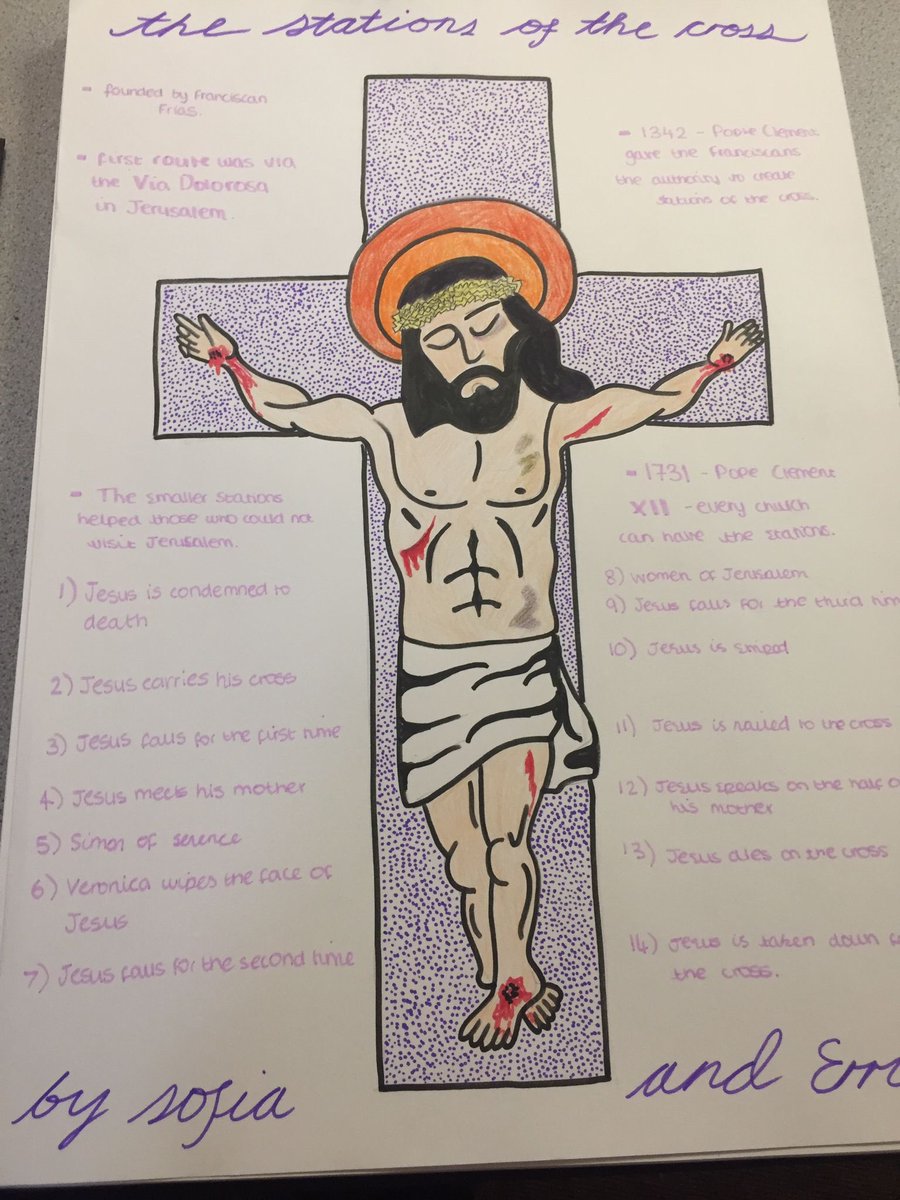 the stations of the cross
- founded by Franciscan
Frias.
- First route was via
the Via Dolorosa
in Jerusalem.
- 1342 - Pope Clement
gave the Franciscans
the authority to create
stations of the cross.
- The smaller stations
helped those who could not
visit Jerusalem.
1) Jesus is condemned to
death
2) Jesus carries his cross
3) Jesus falls for the first time
4) Jesus meets his mother
5) Simon of serence
6) Veronica wipes the face of
Jesus
7) Jesus falls for the second time
- 1731 - Pope Clement
XII - every church
can have the stations.
8) women of Jerusalem
9) Jesus falls for the third time
10) Jesus is
11) Jesus is nailed to the cross
12) Jesus speaks on the half
his mother
13) Jesus dies on the cross
14) Jesus is taken down
the cross.
by sofia
and